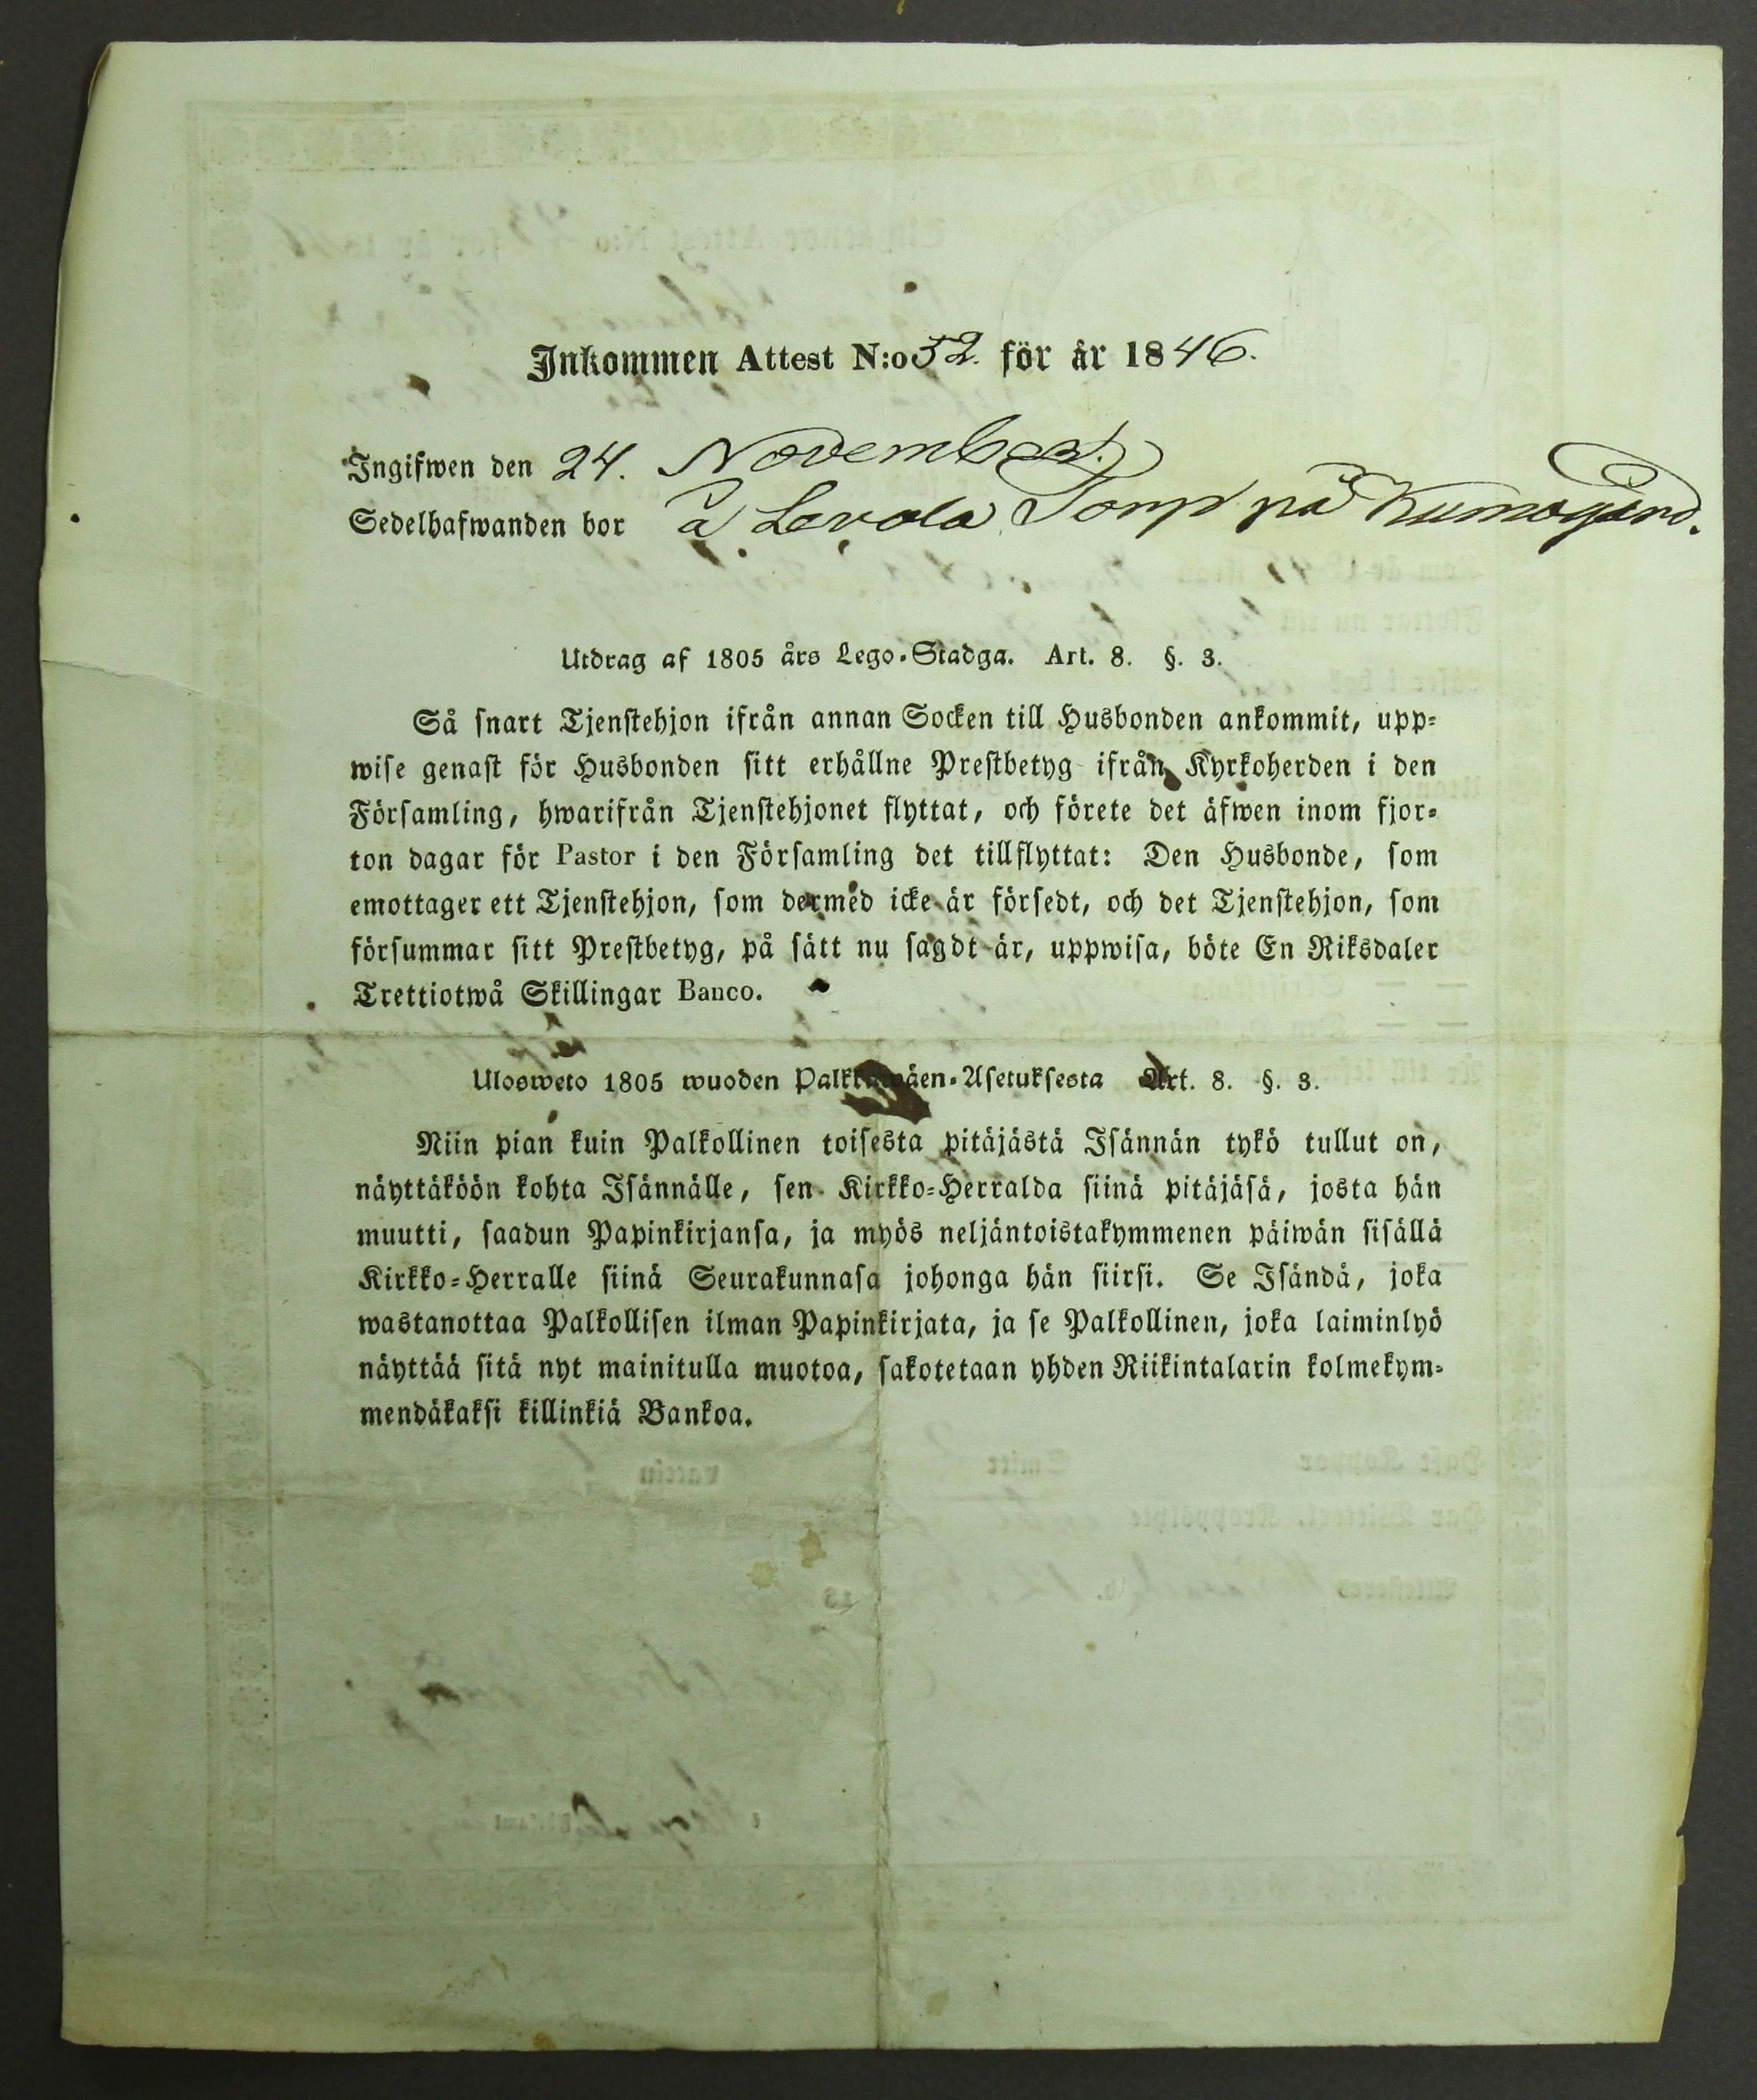 Inkommen Attest N:o 52. för år 1846.
Ingifwen den 24. November.
Sedelhafwanden bor å Levola Torp på Kumogård.
Utdrag af 1805 års Lego-Stadga. Art. 8. §. 3.
Så snart Tjenstehjon ifrån annan Socken till Husbonden ankommit, upp-
wise genast för Husbonden sitt erhållne Prestbetyg ifrån Kyrkoherden i den
Församling, hwarifrån Tjenstehjonet flyttat, och förete det äfwen inom fjor-
ton dagar för Pastor i den Församling det tillflyttat: Den Husbonde, som
emottager ett Tjenstehjon, som dermed icke är försedt, och det Tjenstehjon, som
försummar sitt Prestbetyg, på sätt nu sagdt är, uppwisa, böte En Riksdaler
Trettiotwå Skillingar Banco.
Ulosweto 1805 wuoden Art. 8. §. 3.
Niin pian kuin Palkollinen toisesta pitäjästä Isännän tykö tullut on,
näyttäköön kohta Isännälle, sen Kirkko-Herralda siinä pitäjäsä, josta hän
muutti, saadun Papinkirjansa, ja myös neljäntoistakymmenen päiwän sisällä
Kirkko-Herralle siinä Seurakunnasa johonga hän siirsi. Se Isändä, joka
wastanottaa Palkollisen ilman Papinkirjata, ja se Palkollinen, joka laiminlyö
näyttää sitä nyt mainitulla muotoa, sakotetaan yhden Riikintalarin kolmekym-
mendäkaksi killinkiä Bankoa.